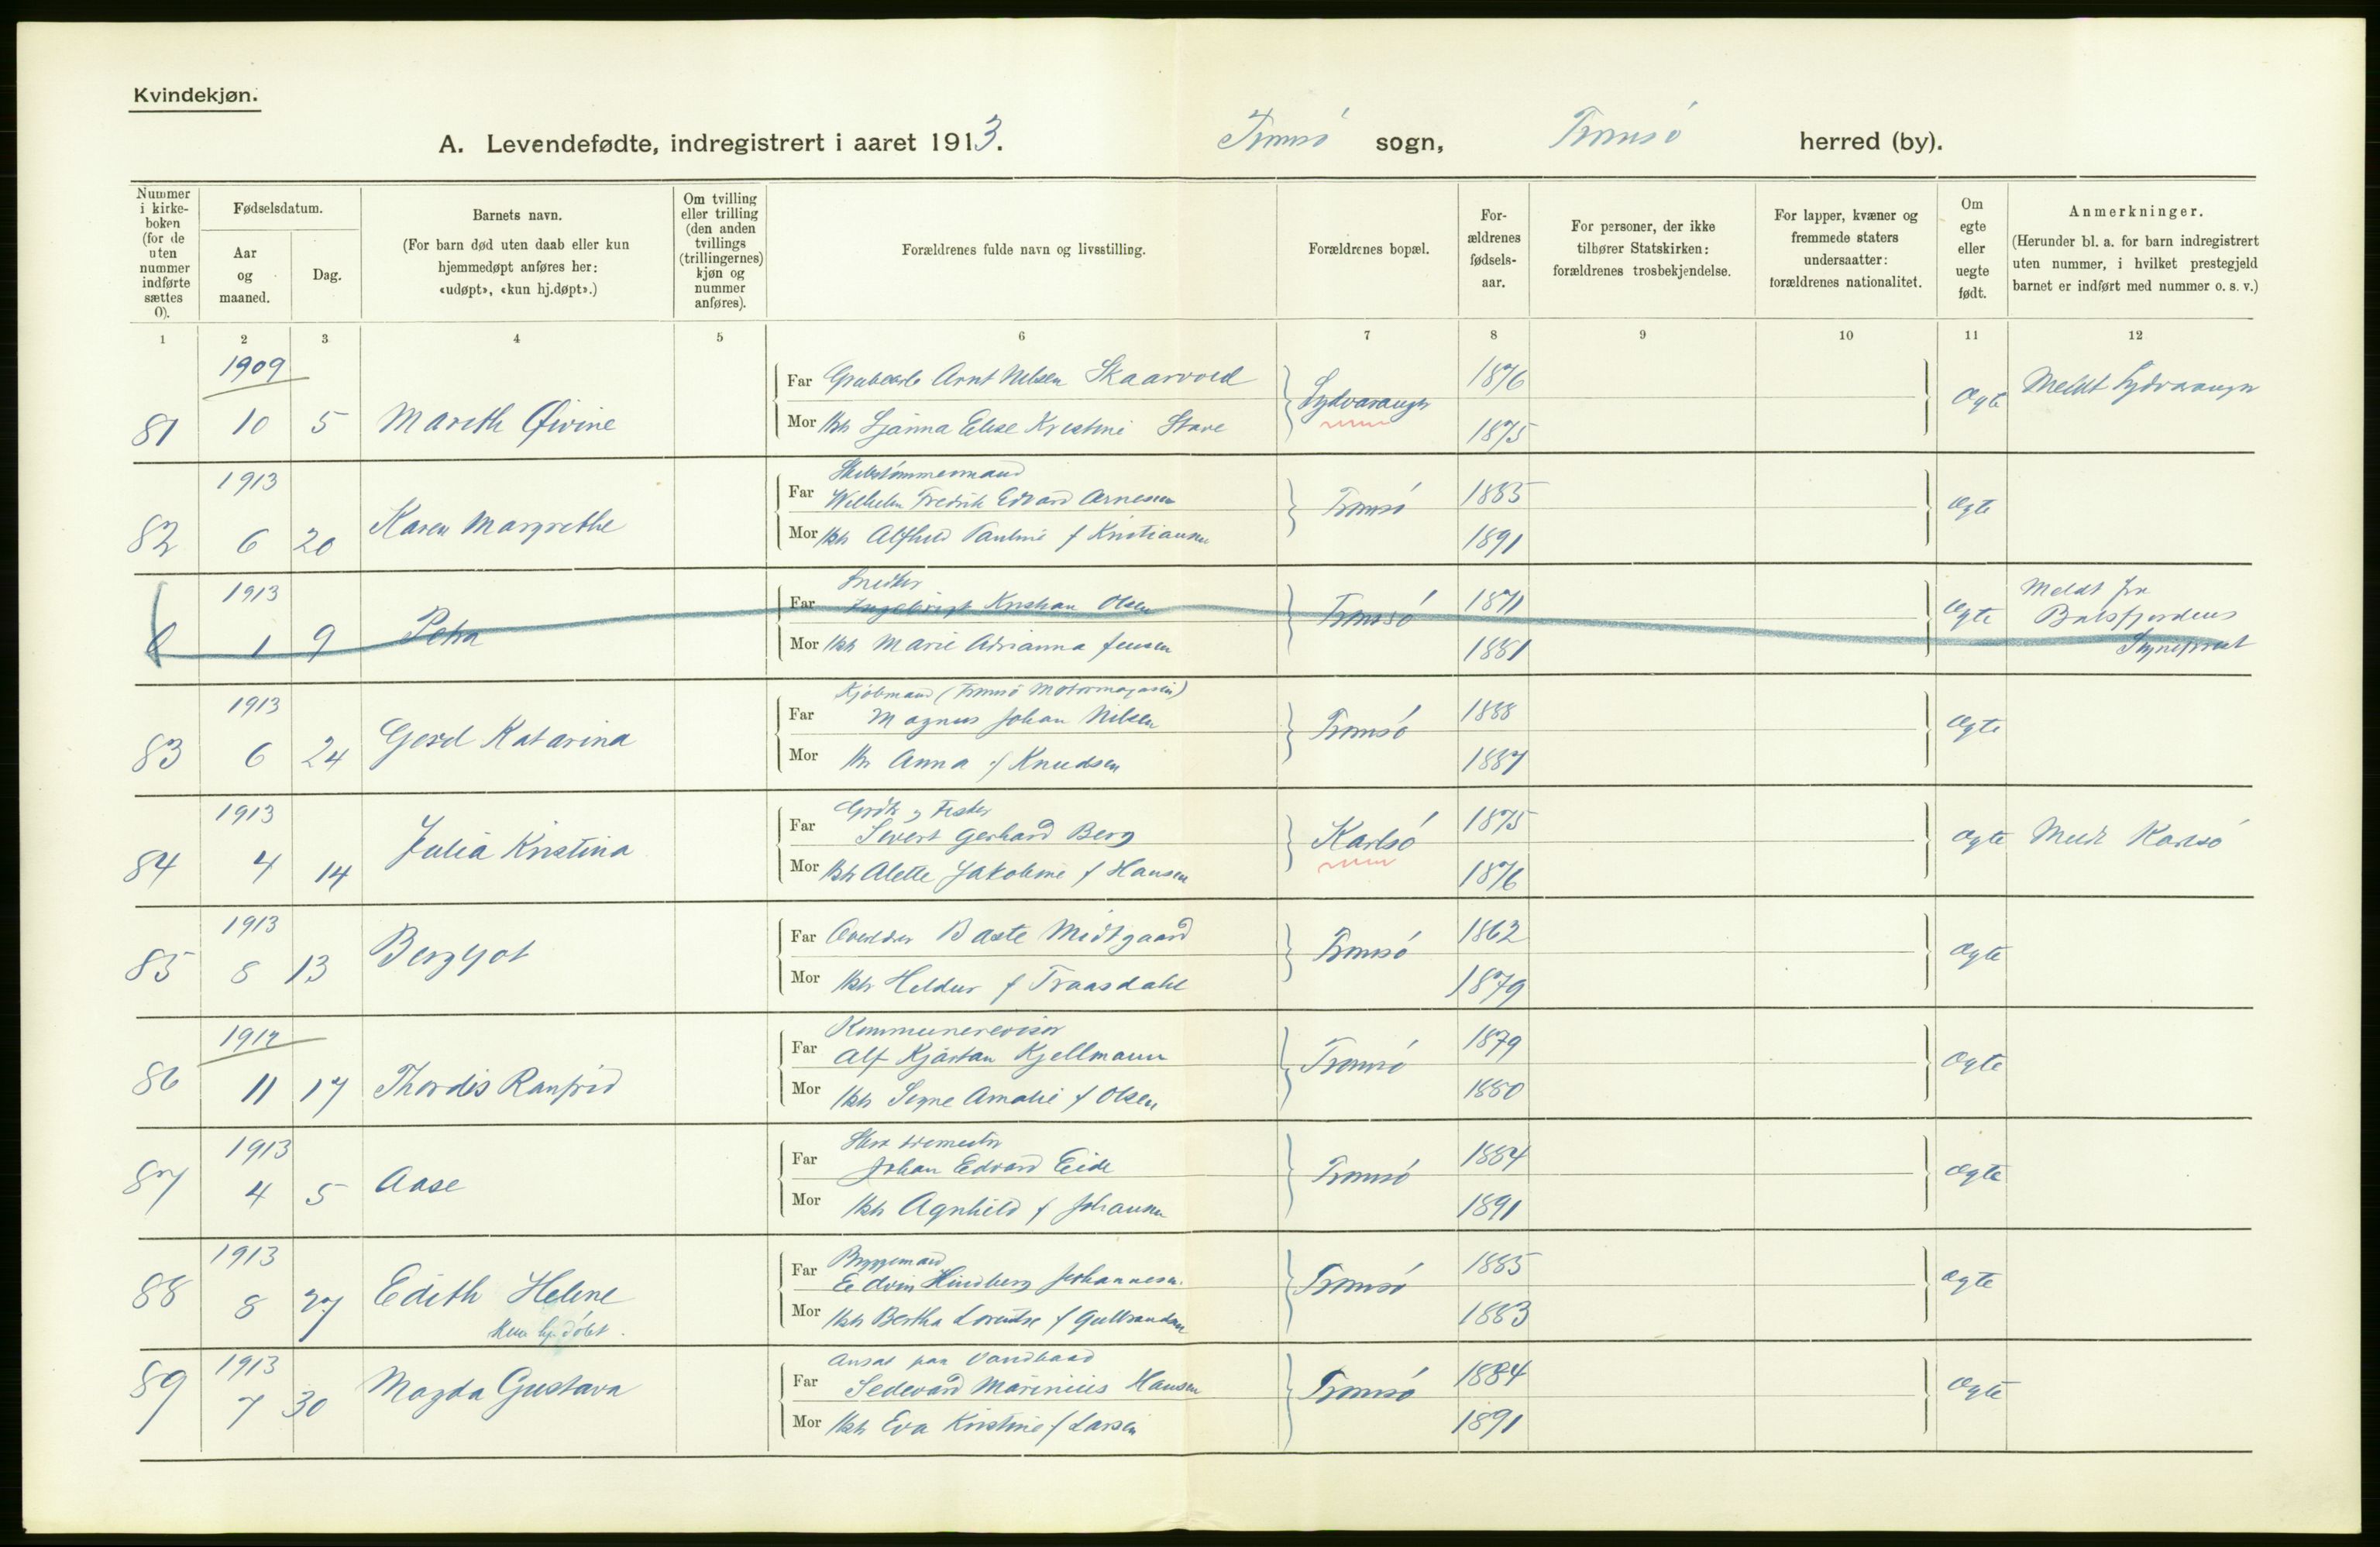 Kvindekjøn.
A. Levendefødte, indregistrert i aaret 1913. Tromsö sogn, Tromsö herred (by).
Nummer i kirke-boken (for de uten nummer indførte sættes 0).
Fødselsdatum.
Aar og maaned.
Dag.
Barnets navn.
(For barn død uten daab eller kun hjemmedøpt anføres her: «udøpt», «kun hj.døpt».)
Om tvilling eller trilling (den anden tvillings (trillingernes) kjøn og nummer anføres).
Forældrenes fulde navn og livsstilling.
Forældrenes bopæl.
For-ældrenes fødsels-aar.
For personer, der ikke tilhører Statskirken: forældrenes trosbekjendelse.
For lapper, kvæner og fremmede staters undersaatter: forældrenes nationalitet.
Om egte eller uegte født.
Anmerkninger.
(Herunder bl. a. for barn indregistrert uten nummer, i hvilket prestegjeld barnet er indført med nummer o. s. v.)
1 2 3 4 5 6 7 8 9 10 11 12
1909
Far Arnt Nilsen Skaarvold 1876
81 10 5 Marith Øivine Sydvaranger Ægte Meldt Sydvaranger
Mor Elise Kristine Stave 1875
1913
Far Wilhelm Fredrik Edvard Arnesen 1885
82 6 20 Karen Margrethe Tromsö Ægte
Mor Hst Alfhild Pauline f Kristiansen 1891
1913 Snedker
Far Ingebrigt Kristian Olsen 1871
0 1 9 Petra Tromsö Ægte Meldt fra Balsfjordens Sogneprest
Mor Hst Marie Adrianna Jensen 1881
1913 Kjöbmand (Tromsö Motormagasin)
Far Magnus Johan Nilsen 1888
83 6 24 Gerd Katarina Tromsö Ægte
Mor Anna f Knudsen 1887
1913 Grdbr og Fisker
Far Sivert Gerhard Berg 1875
84 4 14 Julia Kristina Karlsö Ægte Meldt Karlsö
Mor Hst Alette Jakobine f Hansen 1876
1913
Far Baste Midtgaard 1862
85 8 13 Bergljot Tromsö Ægte
Mor Hst Heldur f Traasdahl 1879
1912 Kommunerevisor
Far Alf Kjartan Kjellmann 1879
86 11 17 Thordis Ranfrid Tromsö Ægte
Mor Hst Signe Amalie f Olsen 1880
1913
Far Johan Edvard Eide 1884
87 4 5 Aase Tromsö Ægte
Mor Hst Agnhild f Johansen 1891
1913 Bryggemand
Far Edvin Hindberg Johannesen 1885
88 8 27 Edith Helene Tromsö Ægte
kun hj. döbt.
Mor Hst Bertha Lorentse f Gulbrandsen 1883
1913 Ansat paa Vandbaad
Far Sedevard Marinius Hansen 1884
89 7 30 Magda Gustava Tromsö Ægte
Mor Hst Eva Kristine f Larsen 1891